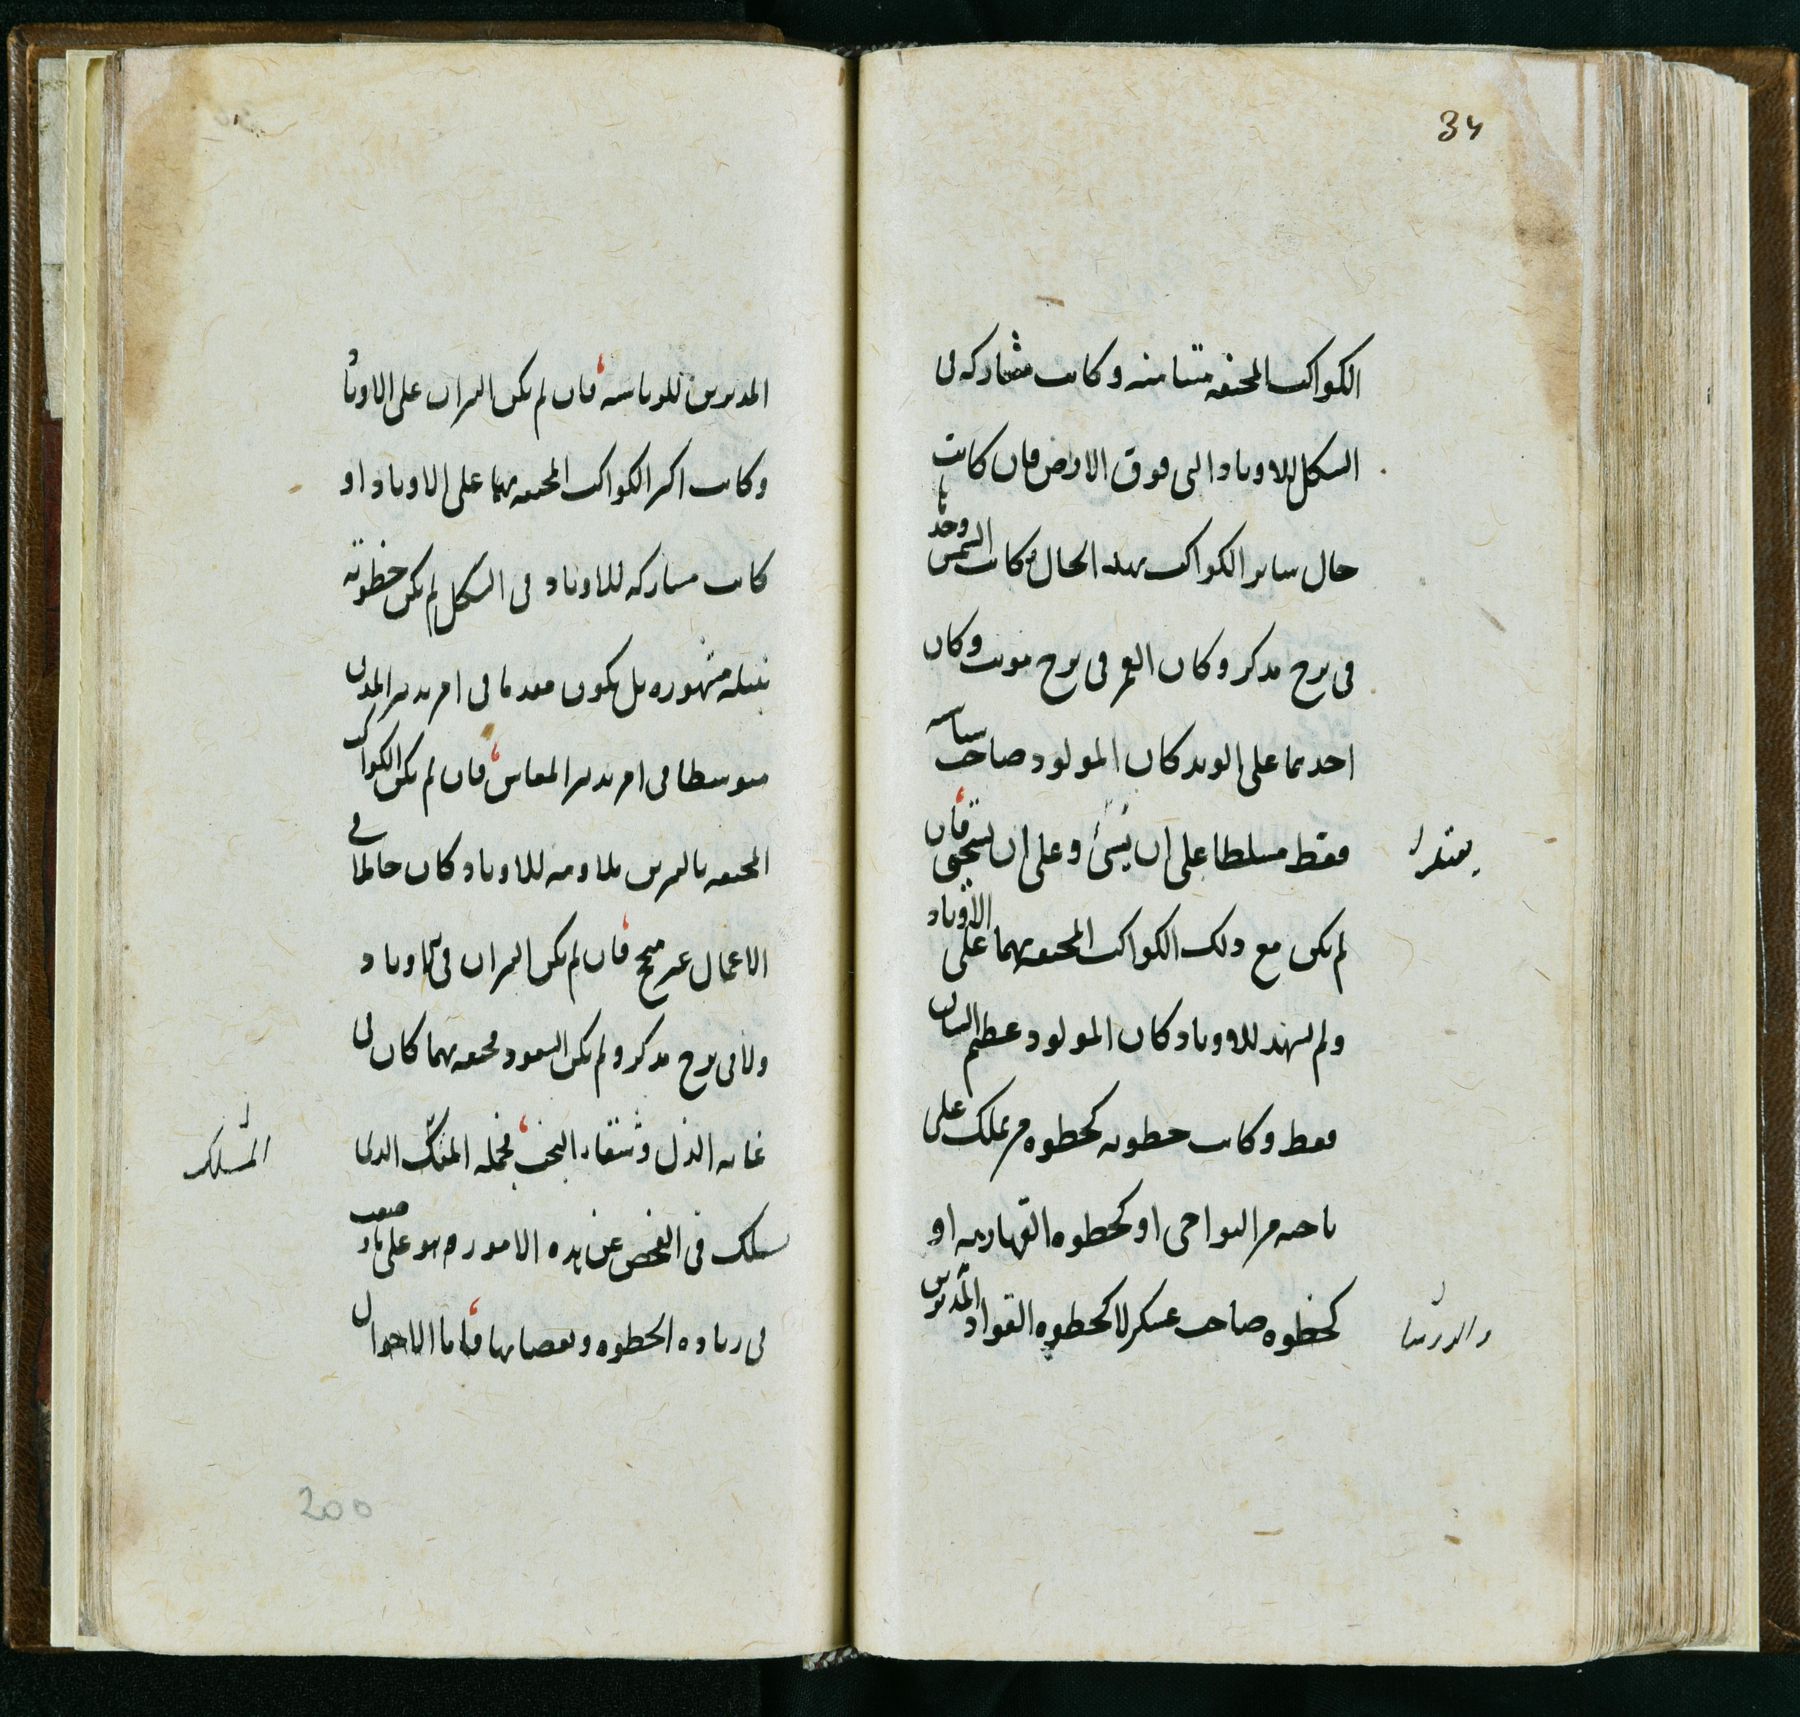 34
الكواكب المحتفه متيامنه وكانت مشاركه فى
الشكل للاوتاد التى فوق الارض فان كانت
حال ساير الكواكب بهذه الحال وكانت الشمس وحدها
فى برج مذكر وكان القمر فى برج مونث وكان
احدهما على الوتد كان المولود صاحب سياسه
فقط مسلطا على ان يُنشئ وعلى ان فان
لم يكن مع ذلك الكواكب المحتفه بهما على الاوتاد
ولم تشهد للاوتاد كان المولود عظيم الشان
فقط وكانت حظوته كحظوه من يملك على
ناحيه من النواحى او كحظوه القهارمه او
كحظوه صاحب عسكر لا كحظوه القواد المدبرين
المدبرين للرياسه فان لم يكن النيران على الاوتاد
وكانت اكثر الكواكب المحتفه بهما على الاوتاد او
كانت مشاركه للاوتاد فى الشكل لم يكن حظوته
نبيله مشهوره بل يكون مقدما فى امر تدبير المدن
متوسطا فى امر تدبير المعاش فان لم يكن الكواكب
المحتفه بالنيرين ملاومه للاوتاد كان خاملا فى
الاعمال غير منجح فان لم يكن النيران فى الاوتاد
ولا فى برج مذكر ولم يكن السعود محتفه بهما كان فى
غايه الذل وشقاء البخت فجمله المسلك الذى
يسلك فى الفحص عن هذه الامور هو على
فى زياده الحظوه ونقصانها فاما الاحوال
المسلك
200